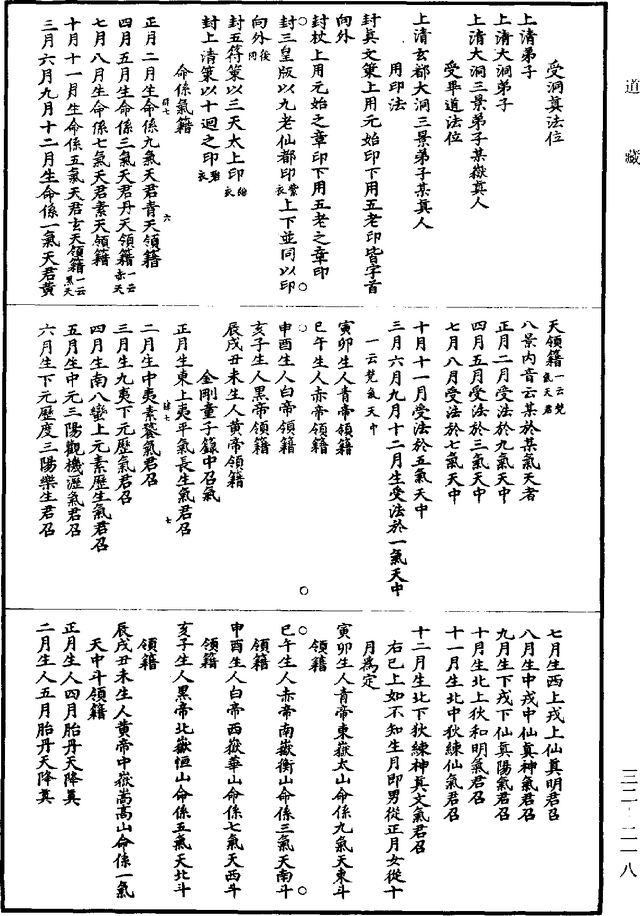 道藏
受洞真法位
上清弟子
上清大洞弟子
上清大洞三景弟子某嶽真人
受畢道法位
上清玄都大洞三景弟子某真人
用印法
封真文策上用元始印下用五老印皆字首
向外
封杖上用元始之章印下用五老之章印
封三皇版以九老仙都印紫衣上下並同以印
向外後同
封五符策以三天太上印衣
封上清策以十迴之印衣
命係氣籍
正月二月生命係九氣天君青天領籍
四月五月生命係三氣天君丹天領籍一云赤天
七月八月生命係七氣天君素天領籍
十月十一月生命係五氣天君玄天領籍一云黑天
三月六月九月十二月生命係一氣天君黃
天領籍一云梵氣天君
八景內音云某於某氣天者
正月二月受法於九氣天中
四月五月受法於三氣天中
七月八月受法於七氣天中
十月十一月受法於五氣天中
三月六月九月十二月生受法於一氣天中
一云梵氣天中
寅卯生人青帝領籍
巳午生人赤帝領籍
申酉生人白帝領籍
亥子生人黑帝領籍
辰戌丑未生人黃帝領籍
金剛童子籙中召氣
正月生東上夷平氣長生氣君召
二月生中夷素饕氣君召
三月生九夷下元歷氣君召
四月生南八蠻上元素歷生氣君召
五月生中元三陽觀機瀝氣君召
六月生下元歷度三陽樂生君召
七月生西上戎上仙真明君召
八月生中戎中仙真神氣君召
九月生下戎下仙真陽氣君召
十月生北上狄和明氣君召
十一月生北中狄練仙氣君召
十二月生北下狄練神真文氣君召
右已上如不知生月即男從正月女從十
月為定
寅卯生人青帝東嶽太山命係九氣天東斗
領籍
巳午生人赤帝南嶽衡山命係三氣天南斗
領籍
申酉生人白帝西嶽華山命係七氣天西斗
領籍
亥子生人黑帝北嶽恒山命係五氣天北斗
領籍
辰戌丑未生人黃帝中嶽嵩高山命係一氣
天中斗領籍
正月生人四月胎丹天降真
二月生人五月胎丹天降真
三二·二一八